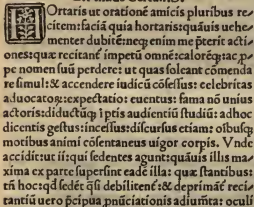 Ortaris ut orationē amicis pluribus re⸗
citem: faciā quia hortaris: quāuis uehe⸗
menter dubitē: neq; enim me p̄terit acti⸗
ones: quæ recitant̄ impetū omnē: calorēq;: ac ꝓ⸗
pe nomen suū perdere: ut quas soleant cōmenda
re simul: & accendere iudicū cōsessus: celebritas
aduocatoꝝ: expectatio: euentus: fama nō unius
actoris: diductūq; ī ptis audientiū studiū: ad hoc
dicentis gestus: incessus: discursus etiam: oībusq;
motibus animi cōsentaneus uigor corpis. Vnde
accidit: ut ii: qui sedentes agunt: quāuis illis ma⸗
xima ex parte supersint eade illa: quæ stantibus:
tn̄ hoc: qd̄ sedēt q̄si debilitenē: & deprimāt̄ reci⸗
tantiū uero p̄cipua ꝓnūciationis adiumēta: oculi